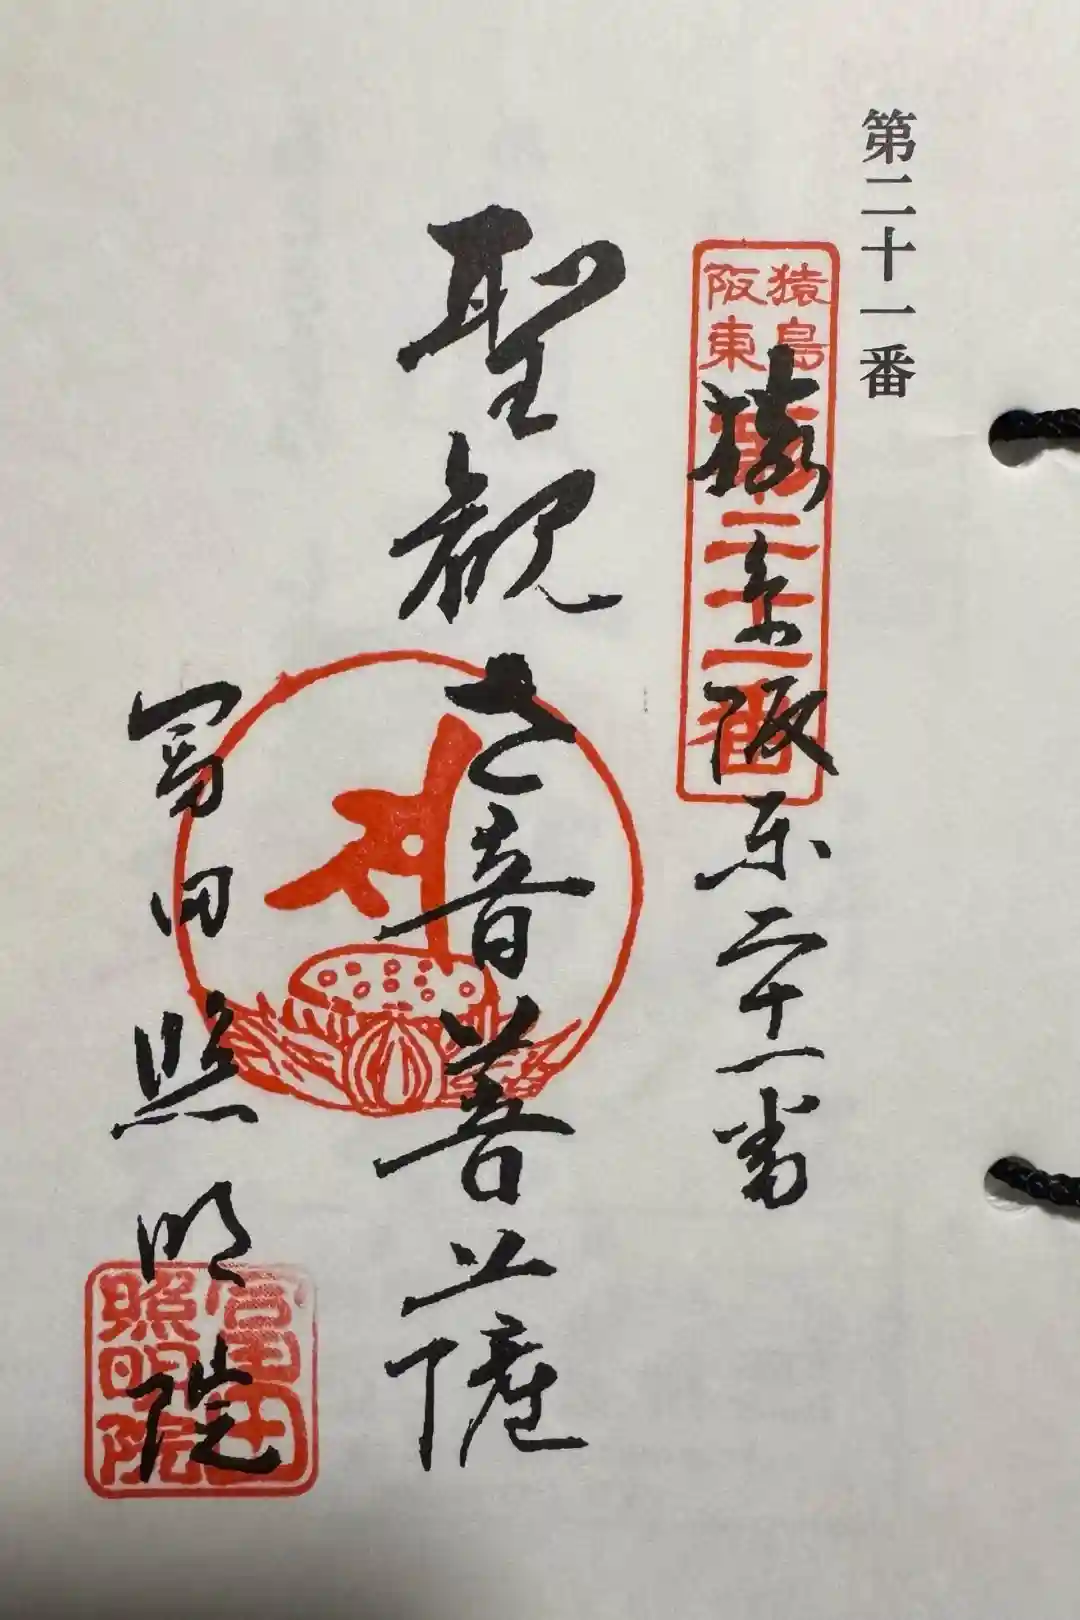 第二十一番
猿島
阪東
第二十一番
猿島阪东二十一番
聖観世音菩薩
冨田照明院
冨田
照明院